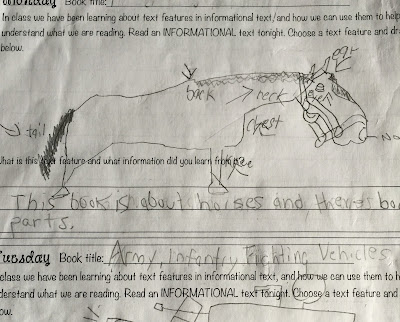 Monday Book title:
In class we have been learning about text features in informational text and how we can use them to help
understand what we are reading. Read an INFORMATIONAL text tonight. Choose a text feature and dra
below.
ear
back
neck
chest
tail
No
knee
What is this text feature and what information did you learn from
This book is about horses and theres bo
parts.
Tuesday Book title: Army, infantry Fighting Vehicles,
class we have been learning about text features in informational text, and how we can use them to he
derstand what we are reading. Read an INFORMATIONAL text tonight. Choose a text feature and
ow.